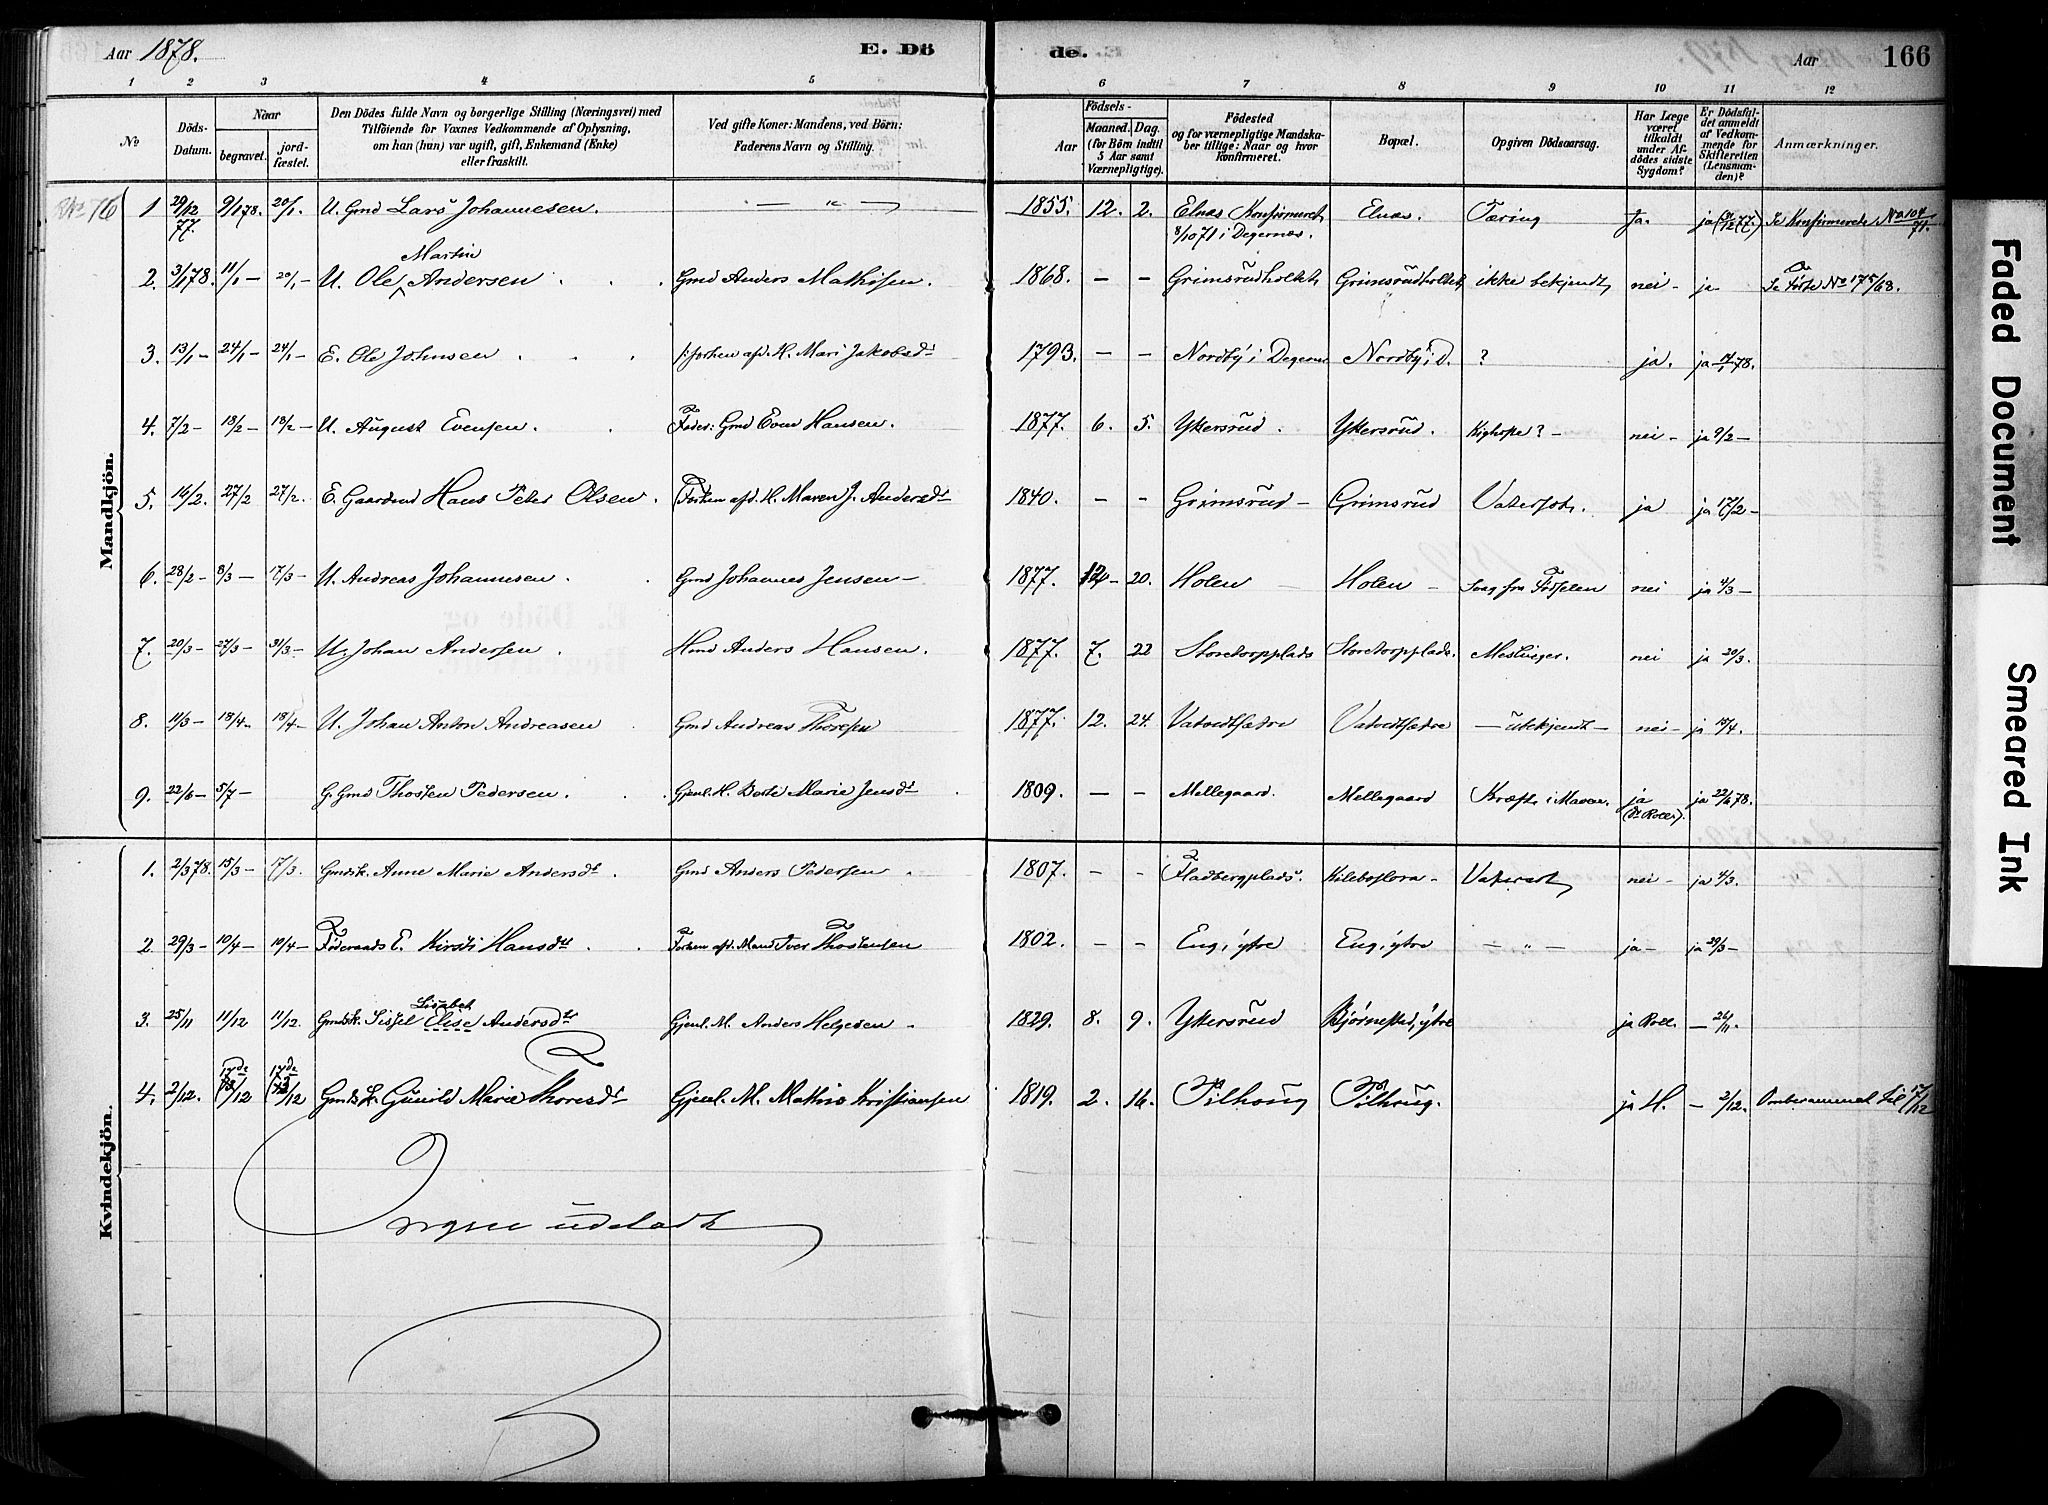 Aar 1878.
E. Dö
de.
Aar
166
1 2 3 4 5 6 7 8 9 10 11 12
No
Döds-Datum.
Naar
begravet.
jord-fæstet.
Den Dödes fulde Navn og borgerlige Stilling (Næringsvei) med
Tilföiende for Voxnes Vedkommende af Oplysning,
om han (hun) var ugift, gift, Enkemand (Enke)
eller fraskilt.
Ved gifte Koner: Mandens, ved Börn:
Faderens Navn og Stilling.
Födsels-
Aar
Maaned. Dag.
(for Börn indtil
5 Aar samt
Værnepligtige).
Födested
og for værnepligtige Mandska-
ber tillige: Naar og hvor
Konfirmeret.
Bopæl.
Opgiven Dödsaarsag.
Har Læge
været
tilkaldt
under Af-
dödes sidste
Sygdom?
Er Dödsfal-
det anmeldt
af Vedkom-
mende for
Skifteretten
(Lensman-
den)?
Anmærkninger.
Mandkjön.
1 29/12 77. 9/1 78. 20/1. U. Gmd Lars Johannesen. — „ — 1855. 12. 2. Elnæs Konfirmeret 8/10 71 i Degernæs. Elnæs. Tæring Ja. ja (31/12 77.) Se Konfirmerede No 104/71.
2. 3/1 78. 11/1 – 20/1 – U. Ole Martin Andersen Gmd Anders Mathisen. 1868. – – Grimsrudholtet Grimsrudholtet ikke bekjendt nei – ja – Se Döbte No 175/68.
3. 13/1 – 24/1 – 24/1 – E. Ole Johnsen forhen afd. H. Mari Jakobsdt 1793. – – Nordby i Degernes Nordby i D. ? ja. ja 14/1 78.
4. 7/2 – 18/2 – 18/2 – U. August Evensen. Fader: Gmd Even Hansen. 1877. 6. 5. Ykersrud. Ykersrud. Kighoste? – nei – ja 9/2 –
5. 16/2. 27/2 27/2. E. Gaardmd Hans Peter Olsen. Forhen afd. H. Maren J. Andersdt 1840. – – Grimsrud – Grimsrud Vatersot. ja ja 17/2 –
6. 28/2 – 8/3 – 17/3 – U. Andreas Johannesen. Gmd Johannes Jensen – 1877. 12 – 20. Holen Holen – Svag fra Födselen nei ja 4/3 –
7. 20/3 – 27/3 – 31/3 – U. Johan Andersen Hmd Anders Hansen. 1877. 7. 22 Storetorpplads Storetorpplads. Meslinger. nei ja 20/3.
8. 11/3 – 18/4 – 18/4 – U. Johan Anton Andreasen Gmd Andreas Thoresen 1877. 12. 24. Vatvedtsætre Vatvedtsætre – ubekjendt – nei – ja 18/4.
9. 22/6 – 5/7 – G. Gmd Thosten Pedersen. Gjenl. H. Berte Marie Jensdt 1809. – – Mellegaard. Mellegaard Kræft i Maven. ja (Dr Roll). ja 22/6 78.
Kvindekjön.
1. 2/3 78. 15/3 – 17/3. Gmdsk. Anne Marie Andersdt. Gmd Anders Pedersen 1807. – – Fladbergplads. Kileboslora – Vatersot nei – ja 4/3.
2. 29/3 – 10/4 – 10/4 – Föderaads E. Kirsti Hansdt Forhen afd. Mand Iver Thostensen 1802. – – Eng, ytre Eng, ytre – „ – ja – ja 29/3 –
3. 25/11 11/12 11/12. Gmdsk. Sissel Elise Lisabet Andersdt Gjenl. M. Anders Helgesen 1829. 8. 9. Ykersrud Bjørnestad, ytre ja Roll. – 26/11.
4. 2/12. 17de 13/12 17de 13/12 Gmdsk. Gunild Marie Thoresdt Gjenl. M. Mathis Kristiansen 1819. 2. 16. Pilhoug Pilhoug. ja H. – 2/12. Omberammet til 17/12
Ingen udeladt
Faded Document
Smeared Ink